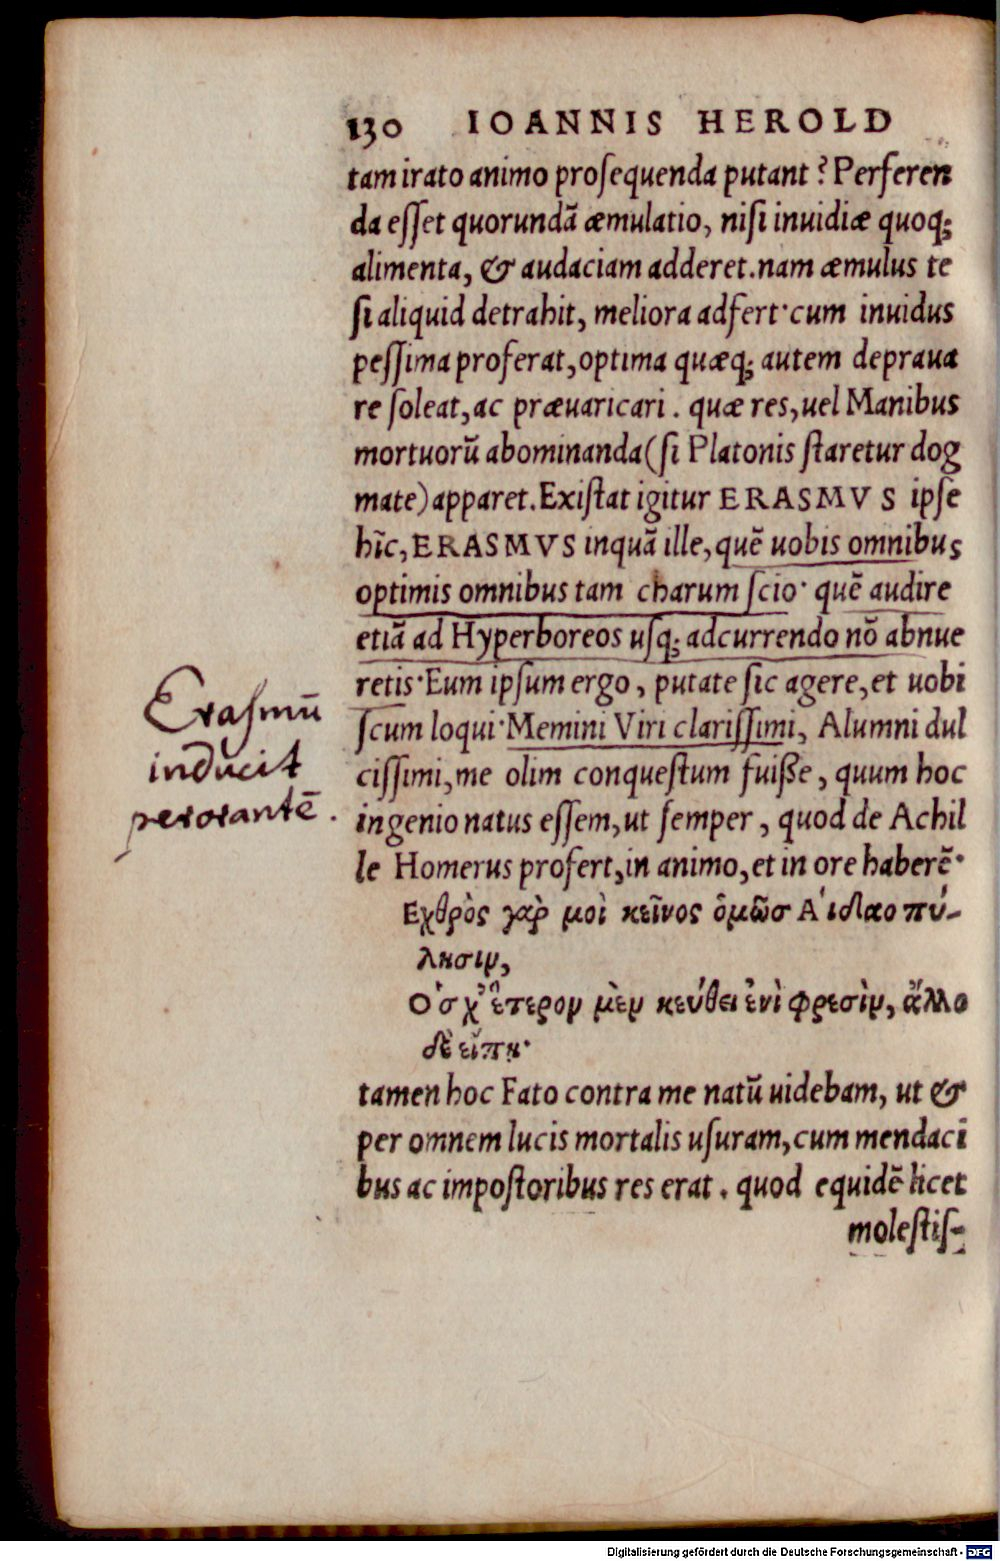 130 IOANNIS HEROLD
tam irato animo proſequenda putant? Perferen
da eſſet quorundā æmulatio, niſi inuidiæ quoq;
alimenta, & audaciam adderet. nam æmulus te
ſi aliquid detrahit, meliora adfert· cum inuidus
peſſima proferat, optima quæq; autem depraua
re ſoleat, ac præuaricari. quæ res, uel Manibus
mortuorū abominanda (ſi Platonis ſtaretur dog
mate) apparet. Exiſtat igitur ERASMVS ipſe
hīc, ERASMVS inquā ille, quē uobis omnibus
optimis omnibus tam charum ſcio· quē audire
etiā ad Hyperboreos uſq; adcurrendo nō abnue
retis· Eum ipſum ergo, putate ſic agere, et uobi
ſcum loqui· Memini Viri clariſſimi, Alumni dul
ciſſimi, me olim conqueſtum fuiße, quum hoc
ingenio natus eſſem, ut ſemper, quod de Achil
le Homerus profert, in animo, et in ore haberē·
Εχθρὸς γὰρ μοὶ κεῖνος ὁμῶσ Α’ιδαο πύ-
λησιν,
Ο῞σ χ’ ἕτερον μὲν κεύθει ἐνὶ φρεσὶν, ἄλλο
δὲ εἴπῃ·
tamen hoc Fato contra me natū uidebam, ut &
per omnem lucis mortalis uſuram, cum mendaci
bus ac impoſtoribus res erat. quod equidē licet
moleſtiſ-
Eraſmū
inducit
perorantē.
Digitalisierung gefördert durch die Deutsche Forschungsgemeinschaft - DFG